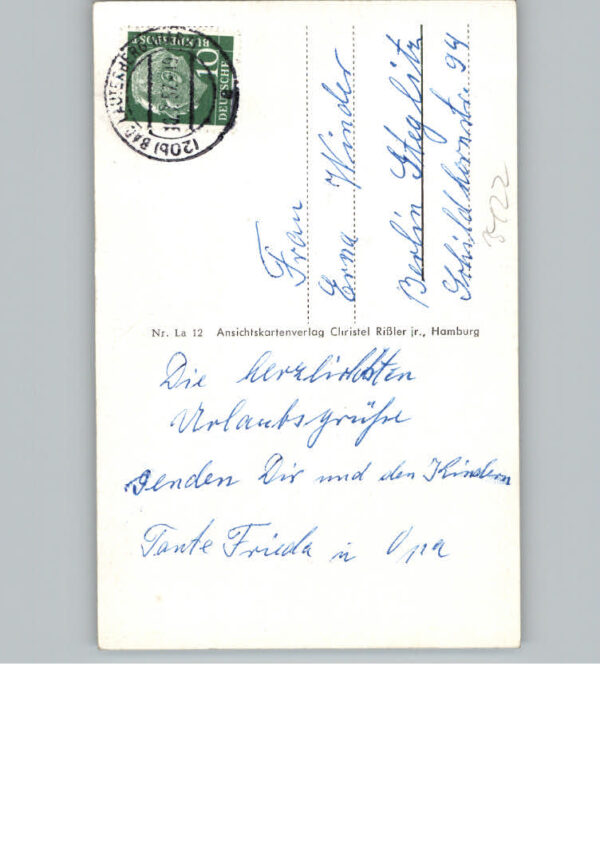 (20b) BAD LAUTERBERG
DEUTSCHE
BUNDESPOST
10
Frau
Erna Winder
Berlin Steglitz
Schildhornstr. 94
Nr. La 12 Ansichtskartenverlag Christel Rißler jr., Hamburg
Die herzlichsten
Urlaubsgrüße
senden Dir und den Kindern
Tante Frieda u Opa